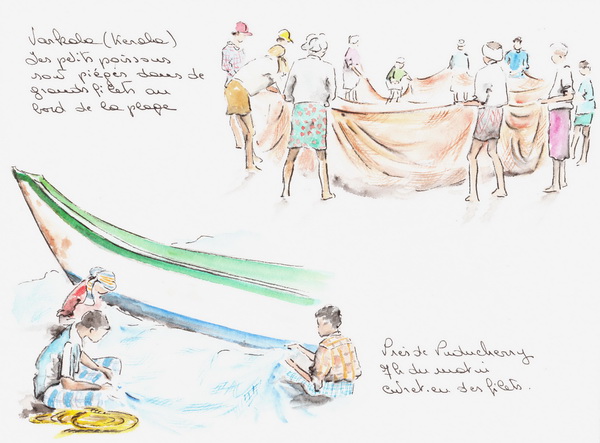 Varkala (Kerala)
Les petits poissons
sont piégés dans de
grands filets au
bord de la plage
Près de Puducherry
7h du matin
entretien des filets.